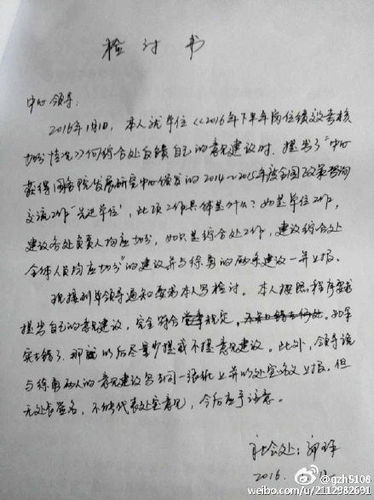 检讨书
中心领导:
2016年1月1日,本人就单位《2016年下半年岗位绩效考核
加分情况》向综合处反馈自己的意见建议时,提出了“中心
获得国务院发展研究中心颁发的2014~2015年度全国政策咨询
交流工作‘先进单位’,此项工作具体是什么?如是单位工作,
建议各处负责人均应加分,如只是综合处工作,建议综合处
全体人员均应加分”的建议并与徐勇的 建议一并上报。
现接到单领导通知要本人写检讨。本人按照程序
提出自己的意见建议,完全符合 规定,如
实在错了,那 以后尽量少提或不提意见建议。此外,领导说
与徐勇两人的意见建议写在同一张纸上并以处室名义上报,但
无处长签名,不能代表处室意见,今后应予注意。
社会处:
2016.
@gzh5108
weibo.com/u/2112982691